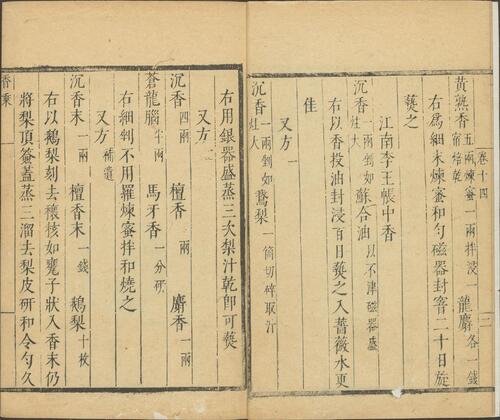 黃熟香五兩煉蜜一兩拌浸一宿焙乾 龍麝各一錢
右為細末煉蜜和勻磁器封窨二十日旋
爇之
江南李王帳中香
沉香一兩剉如炷大 蘇合油以不津磁器盛
右以香投油封浸百日爇之入薔薇水更
佳
又方一
沉香一兩剉如炷大 鵞梨一箇切碎取汁
卷十四
右用銀器盛蒸三次梨汁乾即可爇
又方二
沉香四兩 檀香一兩 麝香一兩
蒼龍腦半兩 馬牙香一分研
右細剉不用羅煉蜜拌和燒之
又方補遺
沉香末一兩 檀香末一錢 鵝梨十枚
右以鵝梨刻去穰核如甕子狀入香末仍
將梨頂簽蓋蒸三溜去梨皮研和令勻久
香乘